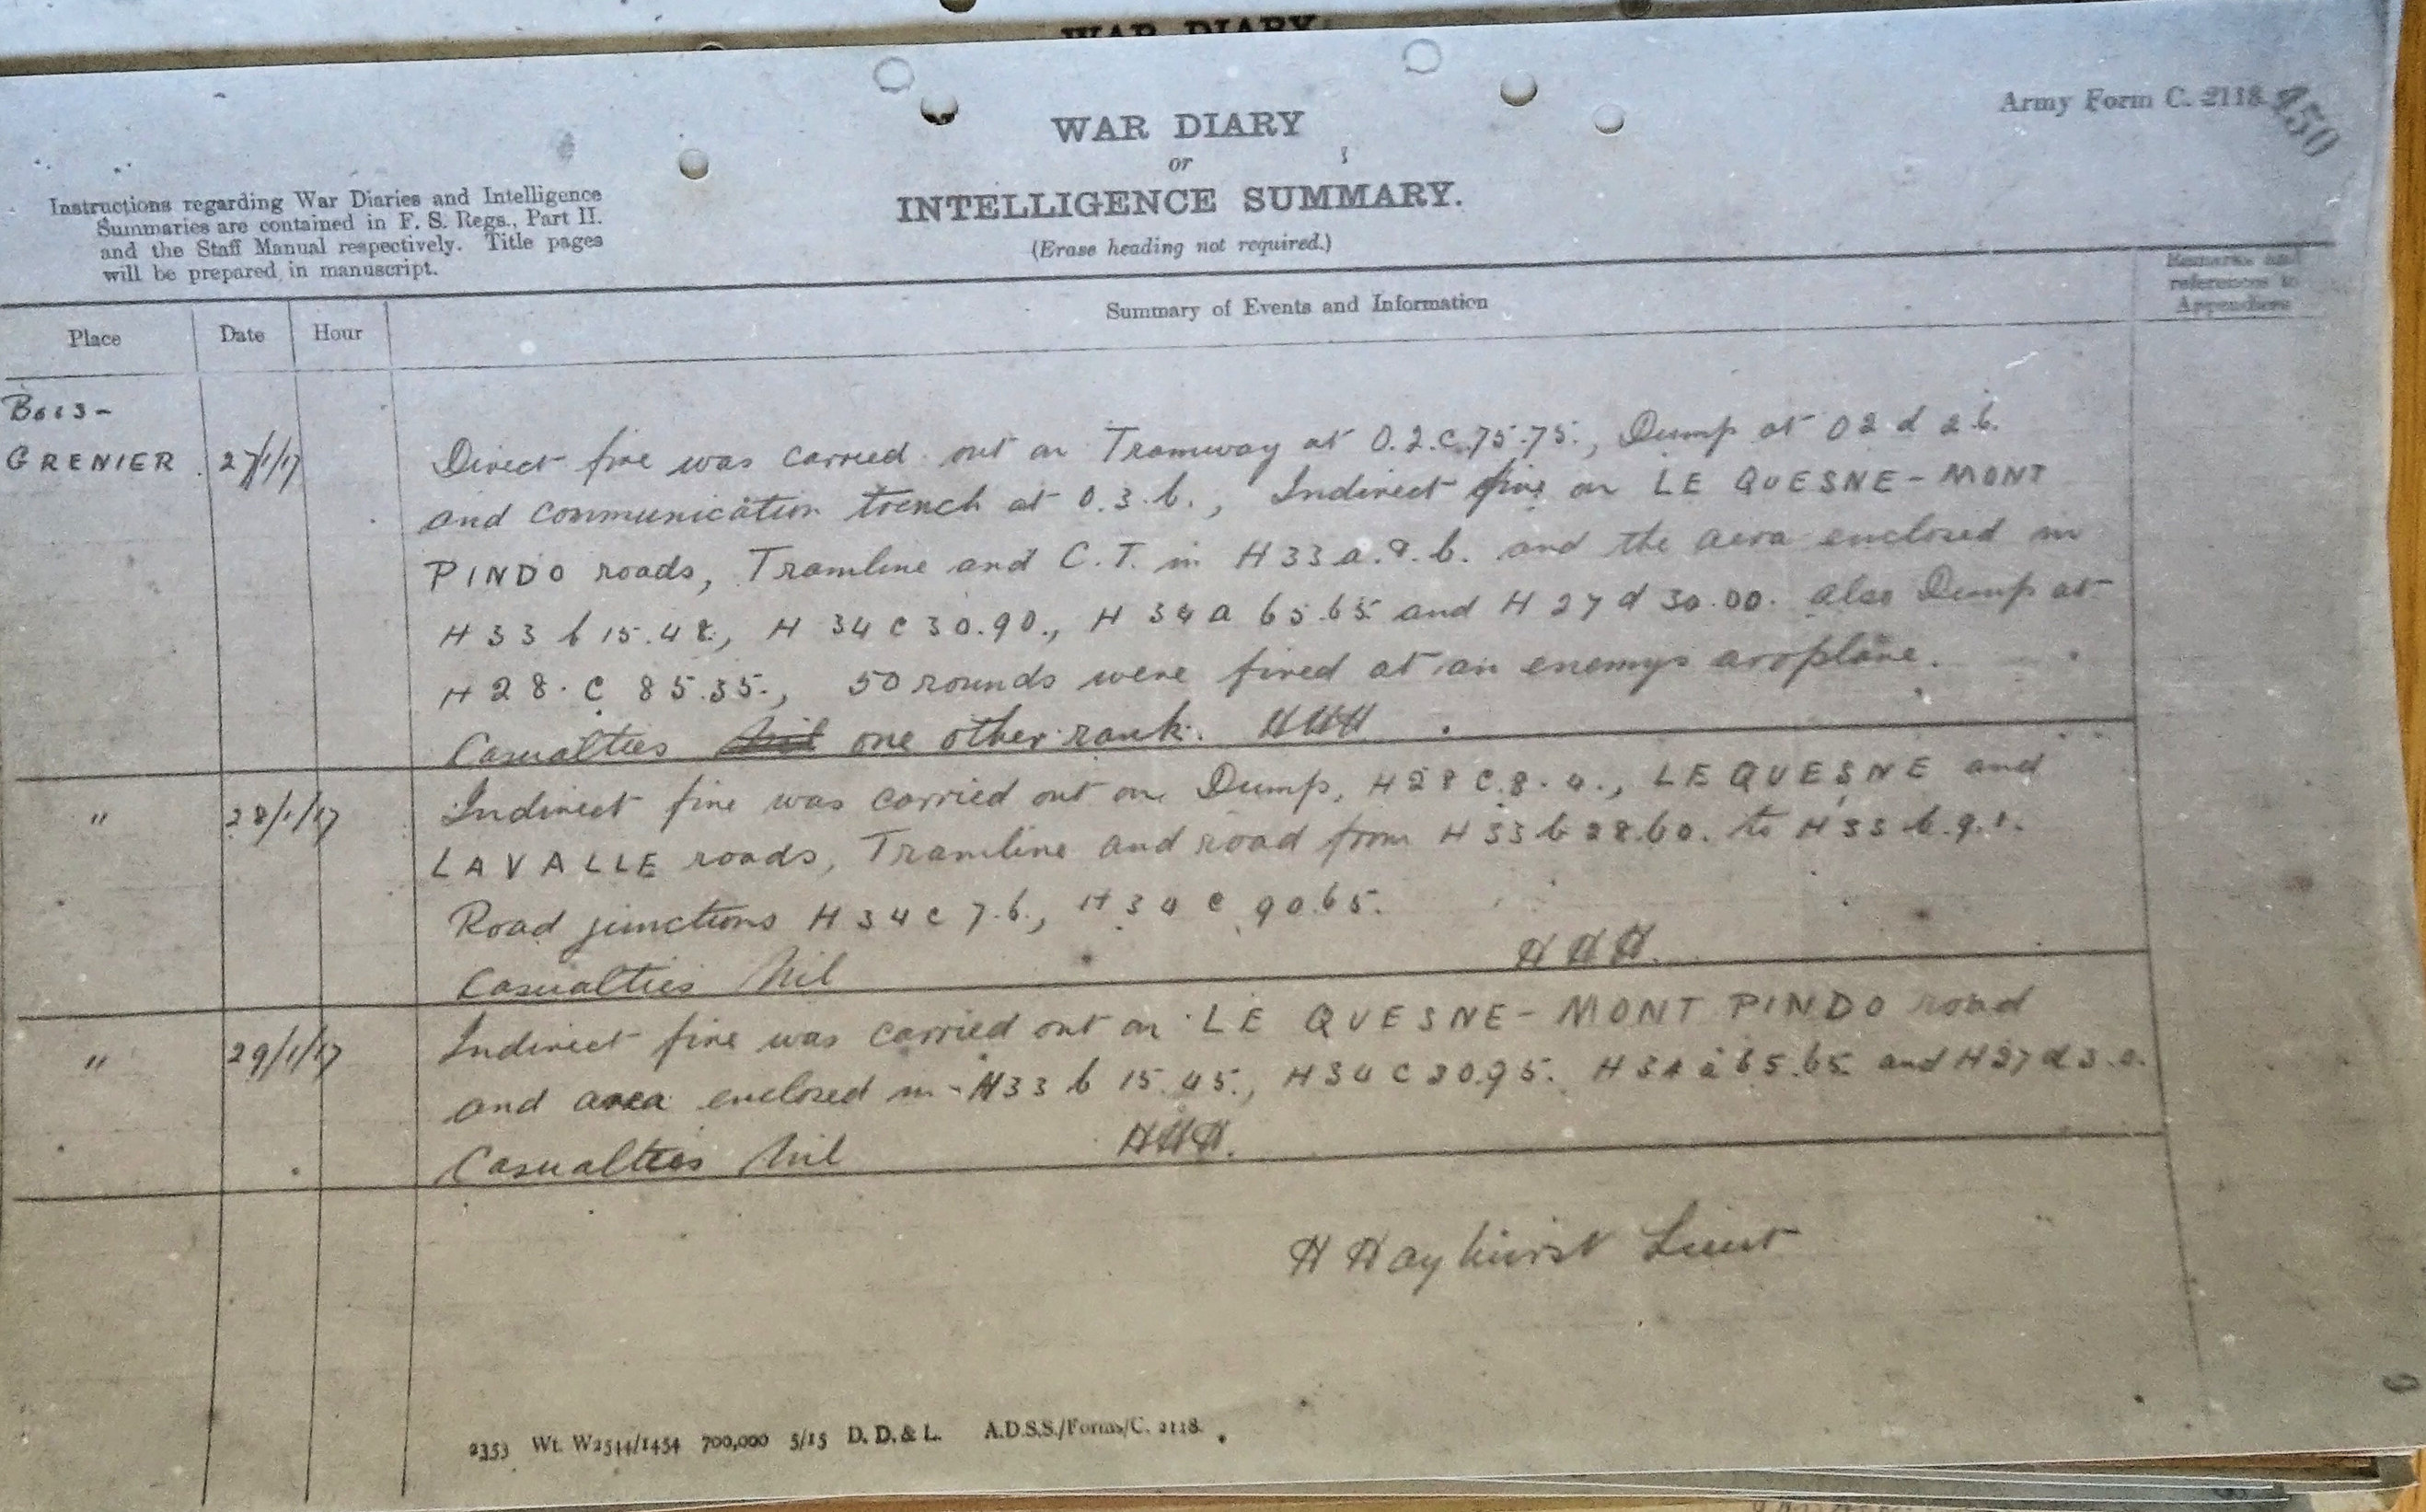 WAR DIARY
Army Form C. 2118.
450
WAR DIARY
or
INTELLIGENCE SUMMARY.
(Erase heading not required.)
Instructions regarding War Diaries and Intelligence
Summaries are contained in F. S. Regs., Part II.
and the Staff Manual respectively. Title pages
will be prepared in manuscript.
Place Date Hour Summary of Events and Information
Remarks and
references to
Appendices
BOIS-
GRENIER. 27/1/17 Direct fire was carried out on Tramway at O.2.c.75.75., Dump at O2 d 2.6.
and communication trench at O.3.b., Indirect fire on LE QUESNE-MONT
PINDO roads, Tramline and C.T. in H33a.&.b. and the aera enclosed in
H33 b 15.48, H 34 c 30.90., H 34 a 65.65 and H 27 d 30.00. also Dump at
H 28. C 85.35., 50 rounds were fired at an enemys aroplane.
Casualties Nil one other rank. HHH
" 28/1/17 Indirect fire was carried out on Dump, H28 C.8.4., LE QUESNE and
LAVALLE roads, Tramline and road from H 33 b 28.60. to H33 b.9.1.
Road junctions H 34 c 7.6., H 34 c 90.65.
Casualties Nil HHH.
" 29/1/17 Indirect fire was carried out on LE QUESNE-MONT PINDO road
and area enclosed in H33 b 15.45., H34 C 30.95. H 34 a 65.65 and H27 d 3.0.
Casualties Nil HHH.
H Hayhurst Lieut
2353 Wt. W2544/1454 700,000 5/15 D. D. & L. A.D.S.S./Forms/C. 2118.